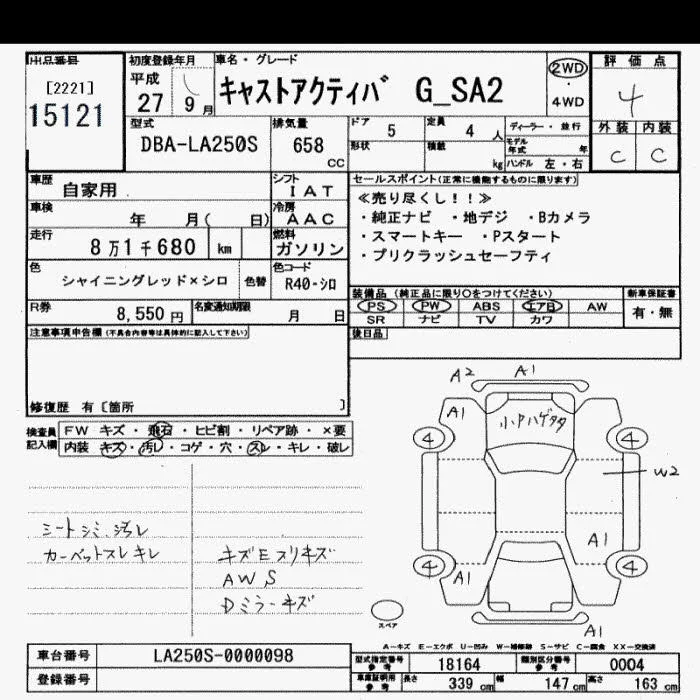 出品番号 初度登録年月 車名・グレード 評価点
[2221] 15121
平成 27 9月
キャストアクティバ G_SA2
2WD ・ 4WD
4
型式 DBA-LA250S
排気量 658 cc
ドア 5 定員 4 人 ディーラー・並行
形状 積載 kg モデル年式 年 ハンドル 左・右
外装 内装
C C
車歴 自家用
シフト IAT
車検 年 月( 日)
冷房 AAC
走行 8万1千680 km
燃料 ガソリン
色 シャイニングレッド×シロ 色替
色コード R40-シロ
R券 8,550円 名変通知期限 月 日
セールスポイント(正常に機能するものに限ります)
≪売り尽くし!!≫
・純正ナビ ・地デジ ・Bカメラ
・スマートキー ・Pスタート
・プリクラッシュセーフティ
装備品 (純正品に限り○をつけてください) 新車保証書
PS PW ABS エアB AW 有・無
SR ナビ TV カワ
後日品
注意事項申告欄(不具合内容等は具体的に記入して下さい)
修復歴 有〔箇所 〕
検査員記入欄
FW キズ・飛石・ヒビ割・リペア跡・×要
内装 キズ・汚レ・コゲ・穴・スレ・キレ・破レ
シートシミ、汚レ
カーペットスレキレ
キズEスリキズ
AWS
Dミラーキズ
A2 A1
A1 小キハゲタタ
4 4
W2
A1
4 4
A1
A1
スペア
A-キズ E-エクボ U-凹み W-補修跡 S-サビ C-腐食 XX-交換済
車台番号 LA250S-0000098
登録番号
型式指定番号 参考 18164 類別区分番号 参考 0004
車庫証明用 参考 長さ 339 cm 幅 147 cm 高さ 163 cm